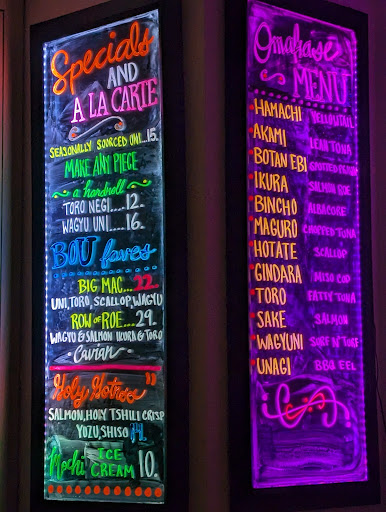 Specials
AND
A LA CARTE
SEASONALLY SOURCED ONI...15.
MAKE ANY PIECE
a handroll
TORO NEGI.....12.
WAGYU UNI.....16.
BOU faves
BIG MAC....22.
UNI, TORO, SCALLOP, WAGYU
ROW OF ROE....29.
WAGYU & SALMON IKURA & TORO
Caviar
Holy Grotres"
SALMON, HOLY TSHILI CRISP
YUZU, SHISO 14.
Mochi ICE
CREAM 10.
Omakase
MENU
HAMACHI YELLOWTAIL
AKAMI LEAN TUNA
BOTAN EBI SPOTTED PRAWN
IKURA SALMON ROE
BINCHO ALBACORE
MAGURO CHOPPED TUNA
HOTATE SCALLOP
GINDARA MISO COD
TORO FATTY TUNA
SAKE SALMON
WAGYUNI SURF N' TURF
UNAGI BBQ EEL